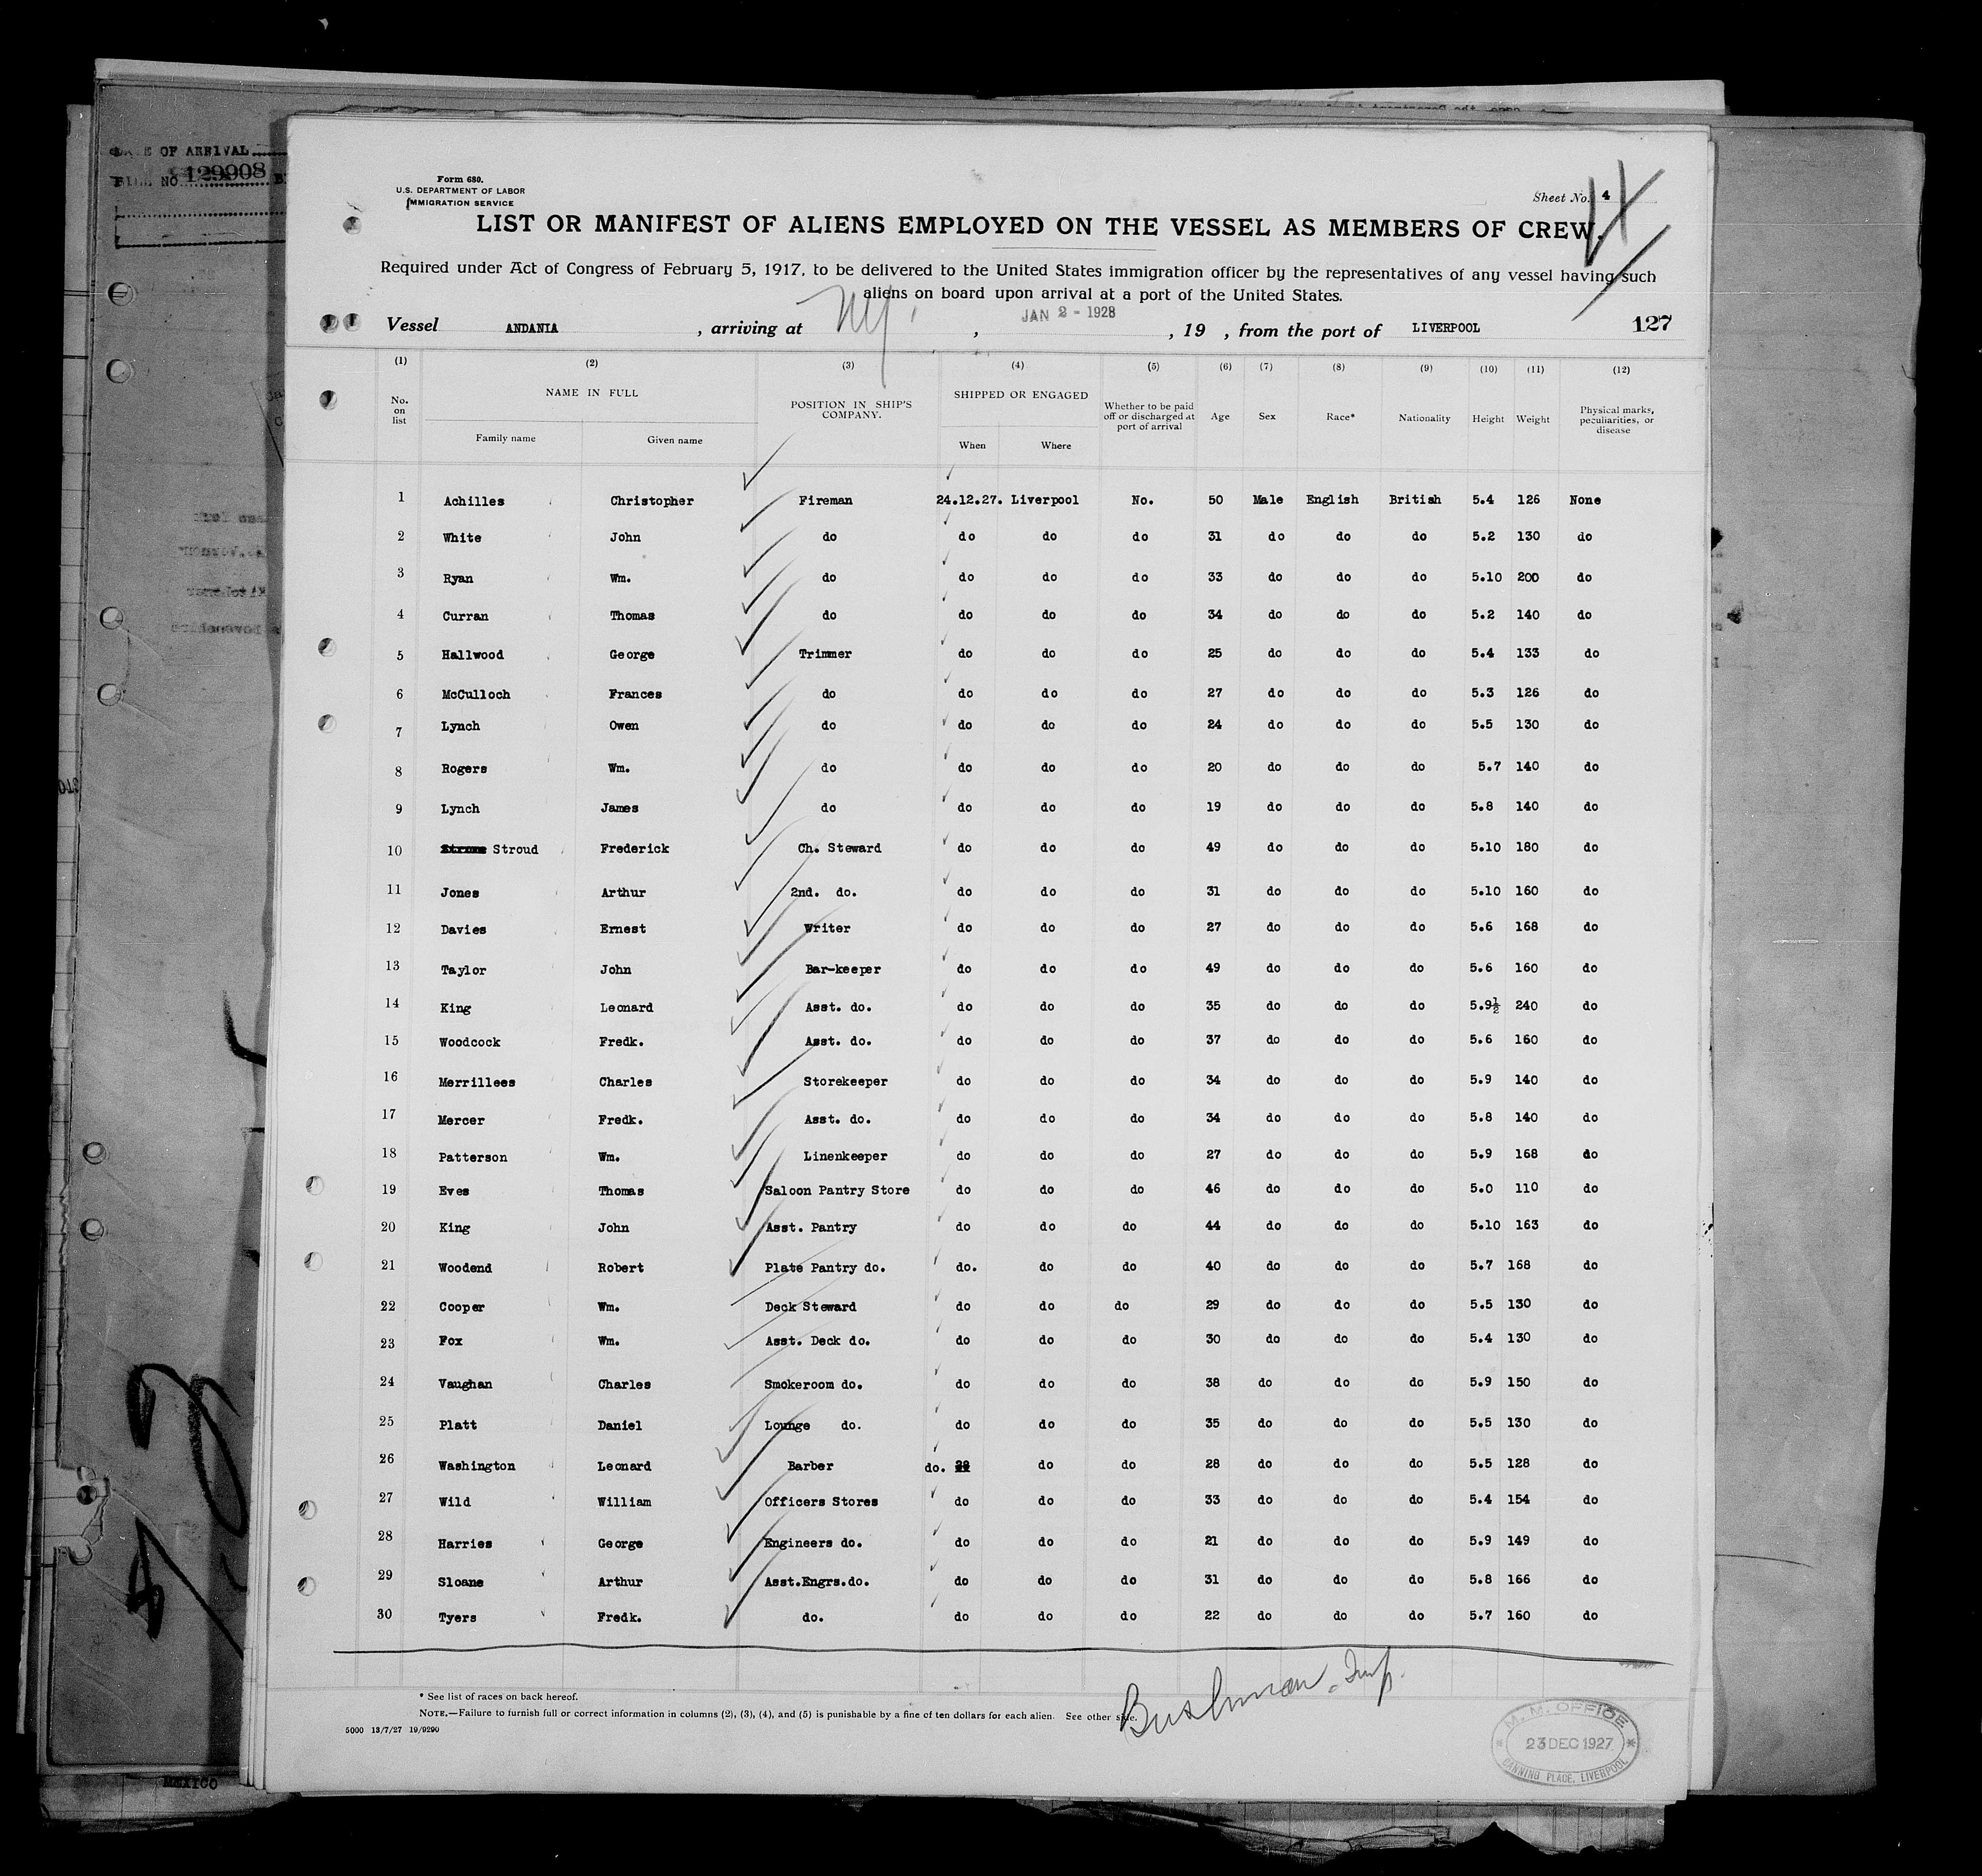 DATE OF ARRIVAL
129908
Form 680.
U.S. DEPARTMENT OF LABOR
IMMIGRATION SERVICE
Sheet No. 4
LIST OR MANIFEST OF ALIENS EMPLOYED ON THE VESSEL AS MEMBERS OF CREW.
Required under Act of Congress of February 5, 1917, to be delivered to the United States immigration officer by the representatives of any vessel having such
aliens on board upon arrival at a port of the United States.
Vessel ANDANIA , arriving at NY , JAN 2 - 1928 , 19 , from the port of LIVERPOOL 127
(1) (2) (3) (4) (5) (6) (7) (8) (9) (10) (11) (12)
No. on list NAME IN FULL Family name Given name POSITION IN SHIP'S COMPANY. SHIPPED OR ENGAGED When Where Whether to be paid off or discharged at port of arrival Age Sex Race* Nationality Height Weight Physical marks, peculiarities, or disease
1 Achilles Christopher Fireman 24.12.27. Liverpool No. 50 Male English British 5.4 126 None
2 White John do do do do 31 do do do 5.2 130 do
3 Ryan Wm. do do do do 33 do do do 5.10 200 do
4 Curran Thomas do do do do 34 do do do 5.2 140 do
5 Hallwood George Trimmer do do do 25 do do do 5.4 133 do
6 McCulloch Frances do do do do 27 do do do 5.3 126 do
7 Lynch Owen do do do do 24 do do do 5.5 130 do
8 Rogers Wm. do do do do 20 do do do 5.7 140 do
9 Lynch James do do do do 19 do do do 5.8 140 do
10 Stroud Frederick Ch. Steward do do do 49 do do do 5.10 180 do
11 Jones Arthur 2nd. do. do do do 31 do do do 5.10 160 do
12 Davies Ernest Writer do do do 27 do do do 5.6 168 do
13 Taylor John Bar-keeper do do do 49 do do do 5.6 160 do
14 King Leonard Asst. do. do do do 35 do do do 5.9½ 240 do
15 Woodcock Fredk. Asst. do. do do do 37 do do do 5.6 160 do
16 Merrillees Charles Storekeeper do do do 34 do do do 5.9 140 do
17 Mercer Fredk. Asst. do. do do do 34 do do do 5.8 140 do
18 Patterson Wm. Linenkeeper do do do 27 do do do 5.9 168 do
19 Eves Thomas Saloon Pantry Store do do do 46 do do do 5.0 110 do
20 King John Asst. Pantry do do do 44 do do do 5.10 163 do
21 Woodend Robert Plate Pantry do. do. do do 40 do do do 5.7 168 do
22 Cooper Wm. Deck Steward do do do 29 do do do 5.5 130 do
23 Fox Wm. Asst. Deck do. do do do 30 do do do 5.4 130 do
24 Vaughan Charles Smokeroom do. do do do 38 do do do 5.9 150 do
25 Platt Daniel Lounge do. do do do 35 do do do 5.5 130 do
26 Washington Leonard Barber do. 28 do do 28 do do do 5.5 128 do
27 Wild William Officers Stores do do do 33 do do do 5.4 154 do
28 Harries George Engineers do. do do do 21 do do do 5.9 149 do
29 Sloane Arthur Asst.Engrs.do. do do do 31 do do do 5.8 166 do
30 Tyers Fredk. do. do do do 22 do do do 5.7 160 do
* See list of races on back hereof.
NOTE.—Failure to furnish full or correct information in columns (2), (3), (4), and (5) is punishable by a fine of ten dollars for each alien. See other side.
5000 13/7/27 19/9290
Bushman, Insp.
M. M. OFFICE
23 DEC 1927
CANNING PLACE, LIVERPOOL
MEXICO